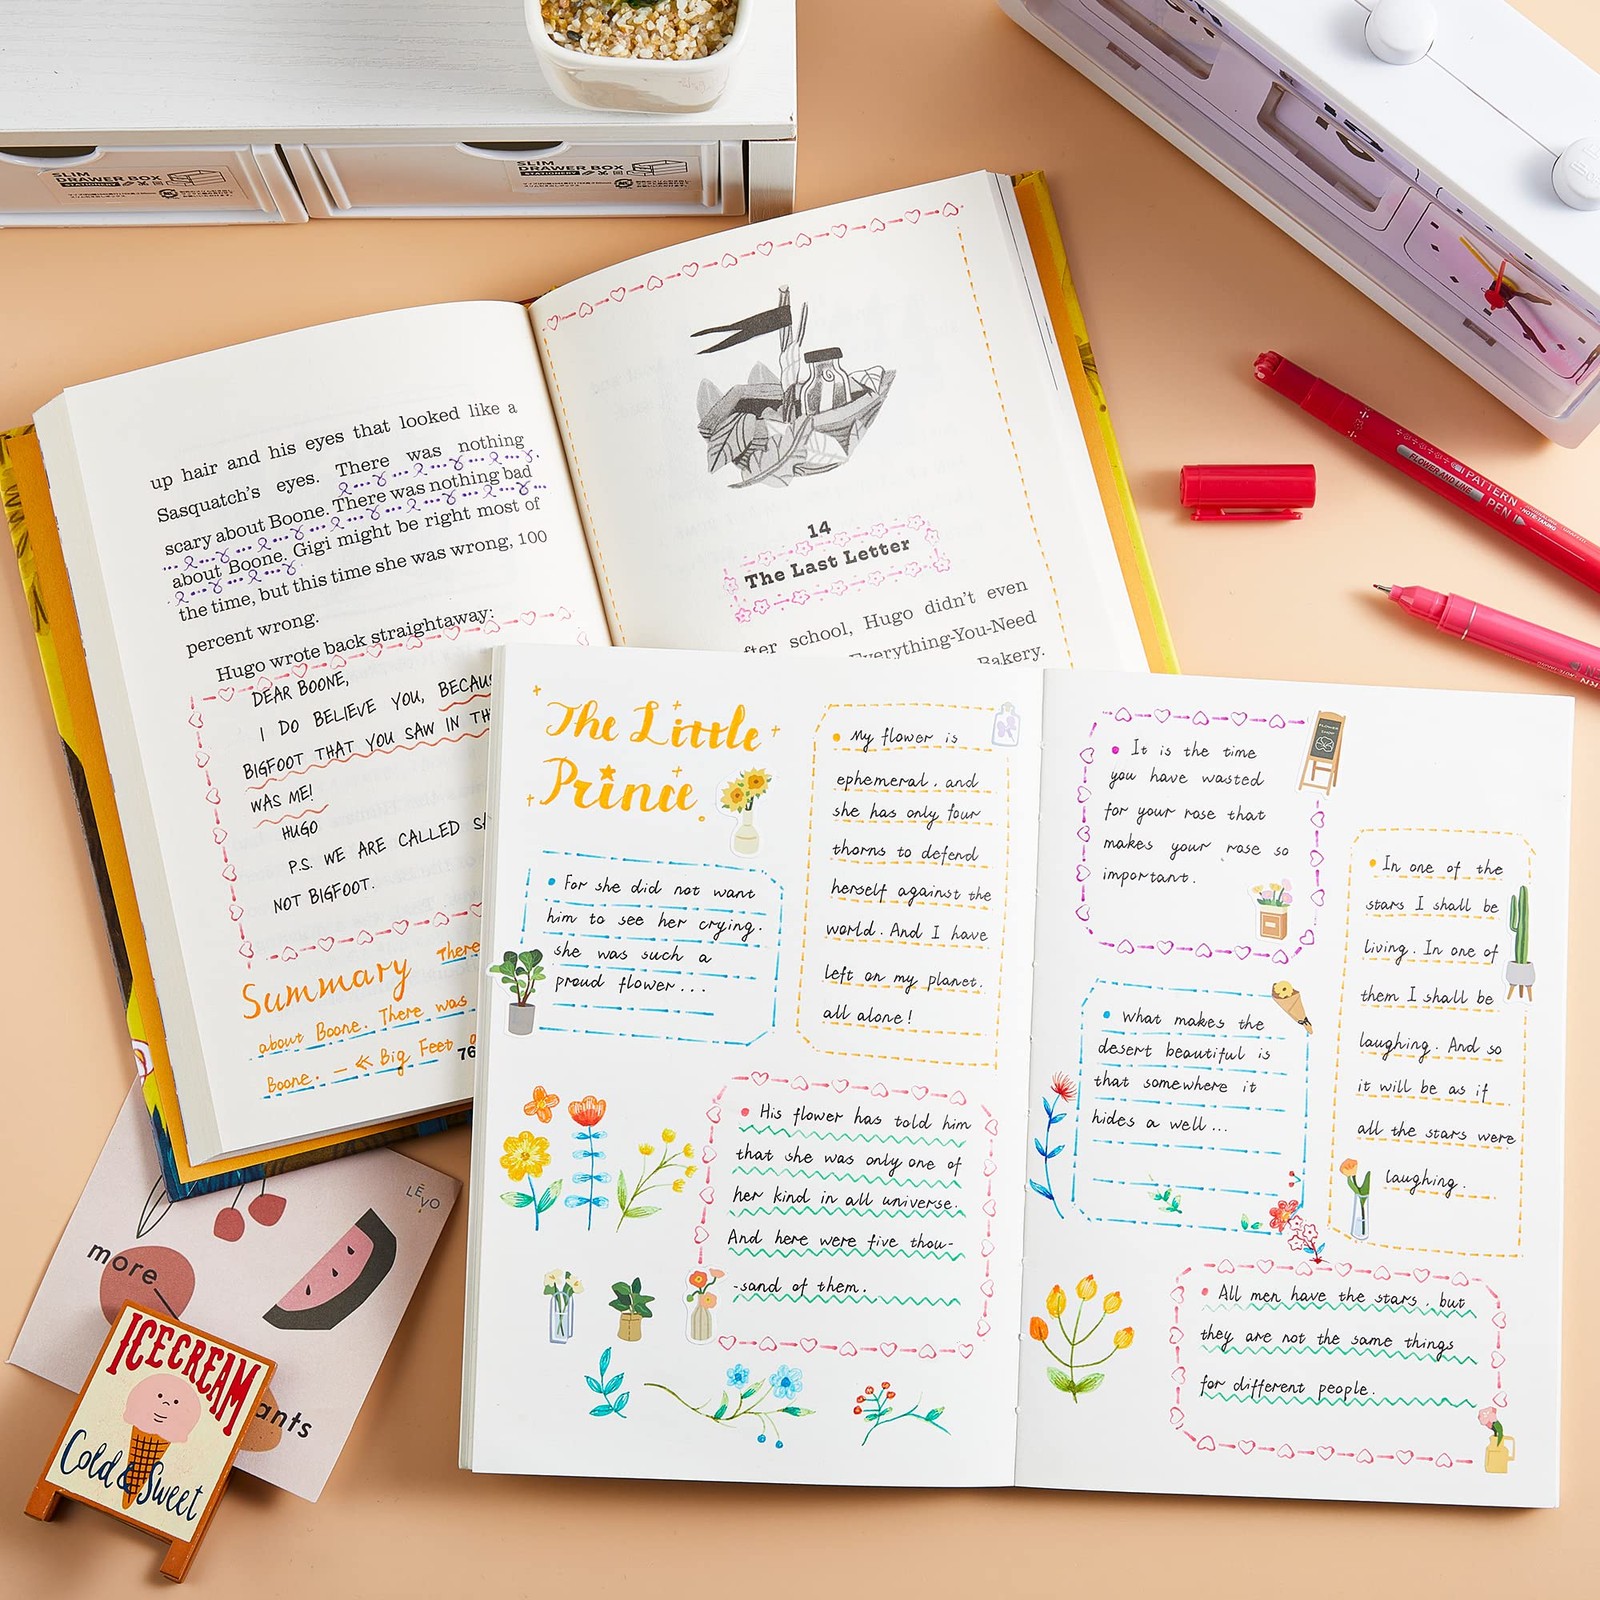 SLIM
DRAWER BOX
STATIONERY
SLIM
DRAWER BOX
STATIONERY
up hair and his eyes that looked like a
Sasquatch's eyes. There was nothing
scary about Boone. There was nothing bad
about Boone. Gigi might be right most of
the time, but this time she was wrong, 100
percent wrong.
Hugo wrote back straightaway:
DEAR BOONE,
I DO BELIEVE YOU,
BIGFOOT THAT YOU SAW IN
WAS ME!
HUGO
P.S. WE ARE CALLED
NOT BIGFOOT.
Summary There
about Boone. There was
Boone. — ≪ Big Feet
76
14
The Last Letter
fter school, Hugo didn't even
Everything-You-Need
Bakery.
PATTERN
PEN
FLOWER AND LINE
NOTE-TAKING
The Little
Prince.
• For she did not want
him to see her crying.
she was such a
proud flower...
• My flower is
ephemeral, and
she has only four
thorns to defend
herself against the
world. And I have
left on my planet.
all alone!
• His flower has told him
that she was only one of
her kind in all universe.
And here were five thou-
-sand of them.
• It is the time
you have wasted
for your rose that
makes your rose so
important.
• What makes the
desert beautiful is
that somewhere it
hides a well...
• In one of the
stars I shall be
living. In one of
them I shall be
laughing. And so
it will be as if
all the stars were
laughing.
• All men have the stars, but
they are not the same things
for different people.
LĒVO
more
ants
ICECREAM
Cold & Sweet